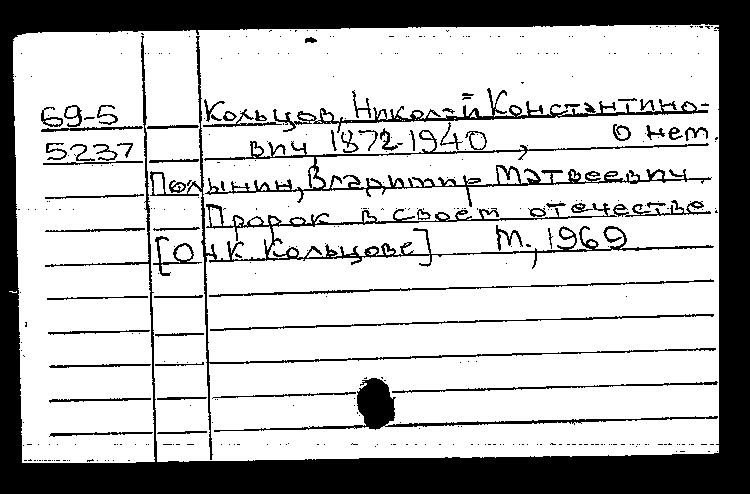 69-5 Кольцов, Николай Константино=
5237 вич, 1872-1940, о нем.
Полынин, Владимир Матвеевич.
Пророк в своем отечестве.
[О Н.К. Кольцове]. М., 1969